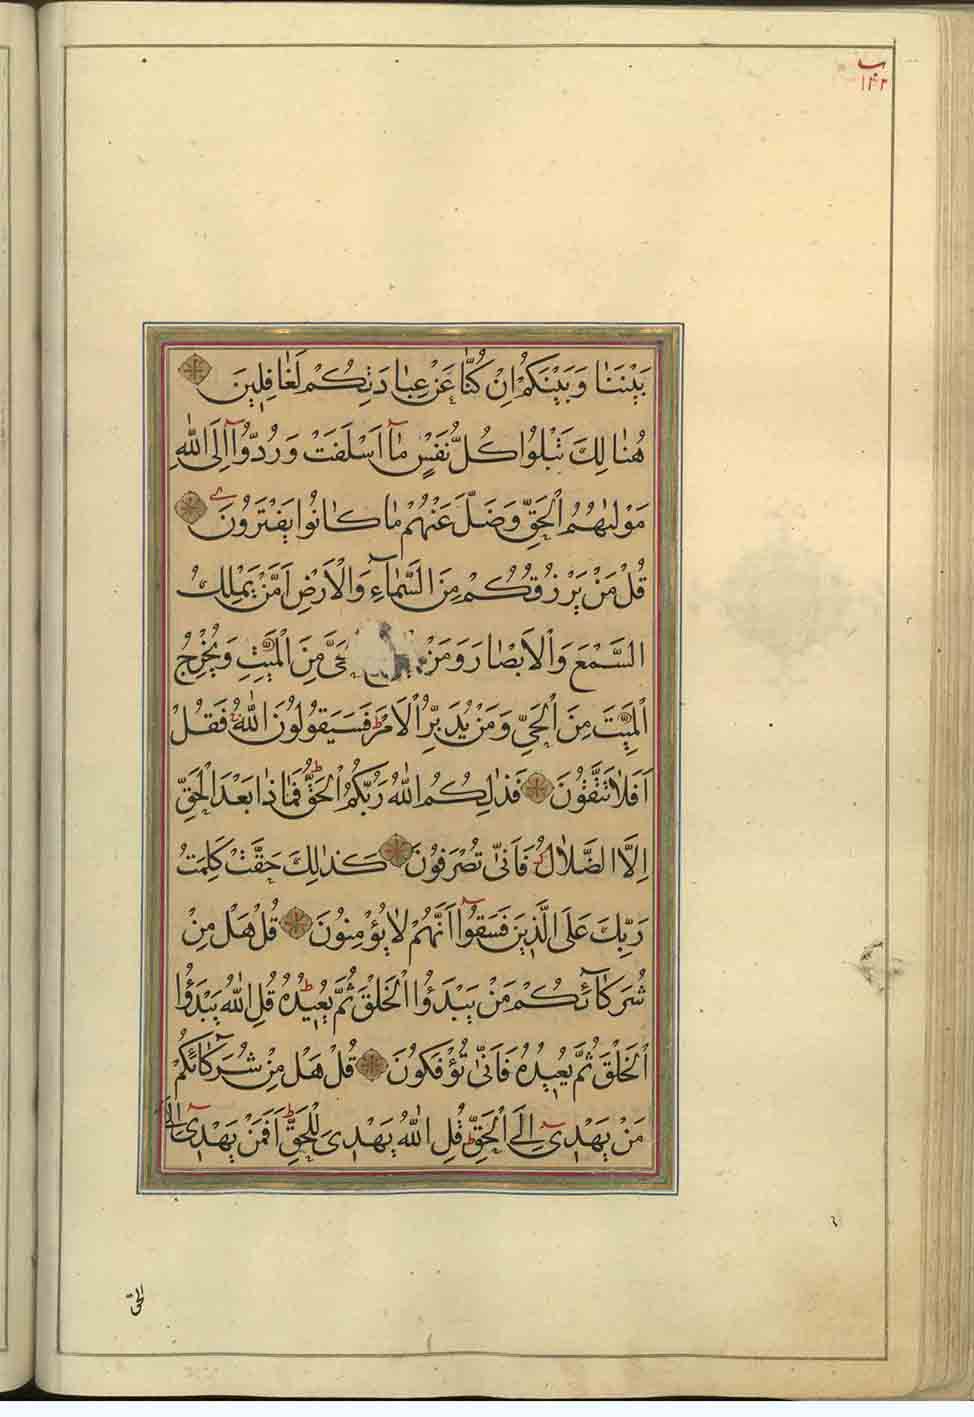 ب
۱۴۲
بَيْنَنَا وَبَيْنَكُمْ اِنْ كُنَّا عَنْ عِبَادَتِكُمْ لَغَافِلِينَ
هُنَالِكَ تَبْلُوا كُلُّ نَفْسٍ مَآ اَسْلَفَتْ وَرُدُّوٓا اِلَى اللّٰهِ
مَوْلٰيهُمُ الْحَقِّ وَضَلَّ عَنْهُمْ مَا كَانُوا يَفْتَرُونَ
قُلْ مَنْ يَرْزُقُكُمْ مِنَ السَّمَآءِ وَالْاَرْضِ اَمَّنْ يَمْلِكُ
السَّمْعَ وَالْاَبْصَارَ وَمَنْ حَىَّ مِنَ الْمَيِّتِ وَيُخْرِجُ
الْمَيِّتَ مِنَ الْحَيِّ وَمَنْ يُدَبِّرُ الْاَمْرَ فَسَيَقُولُونَ اللّٰهُ فَقُلْ
اَفَلَا تَتَّقُونَ فَذٰلِكُمُ اللّٰهُ رَبُّكُمُ الْحَقُّ فَمَاذَا بَعْدَ الْحَقِّ
اِلَّا الضَّلَالُ فَاَنّٰى تُصْرَفُونَ كَذٰلِكَ حَقَّتْ كَلِمَتُ
رَبِّكَ عَلَى الَّذِينَ فَسَقُوٓا اَنَّهُمْ لَا يُؤْمِنُونَ قُلْ هَلْ مِنْ
شُرَكَآئِكُمْ مَنْ يَبْدَؤُا الْخَلْقَ ثُمَّ يُعِيدُهُ قُلِ اللّٰهُ يَبْدَؤُا
الْخَلْقَ ثُمَّ يُعِيدُهُ فَاَنّٰى تُؤْفَكُونَ قُلْ هَلْ مِنْ شُرَكَآئِكُمْ
مَنْ يَهْدِىٓ اِلَى الْحَقِّ قُلِ اللّٰهُ يَهْدِى لِلْحَقِّ اَفَمَنْ يَهْدِىٓ اِلَى
الحق